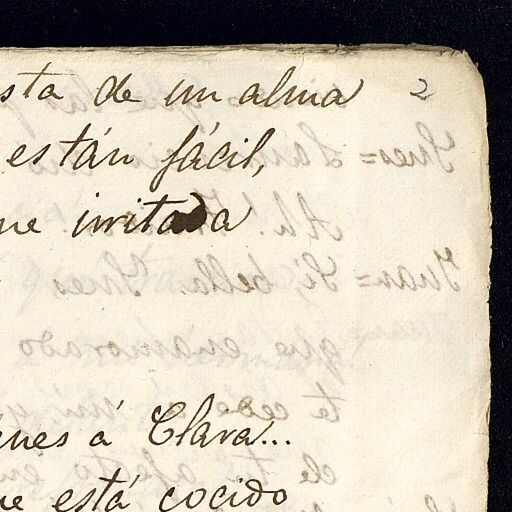 sta de un alma 2
están fácil,
ue irritada
enes á Clara...
ue está cocido